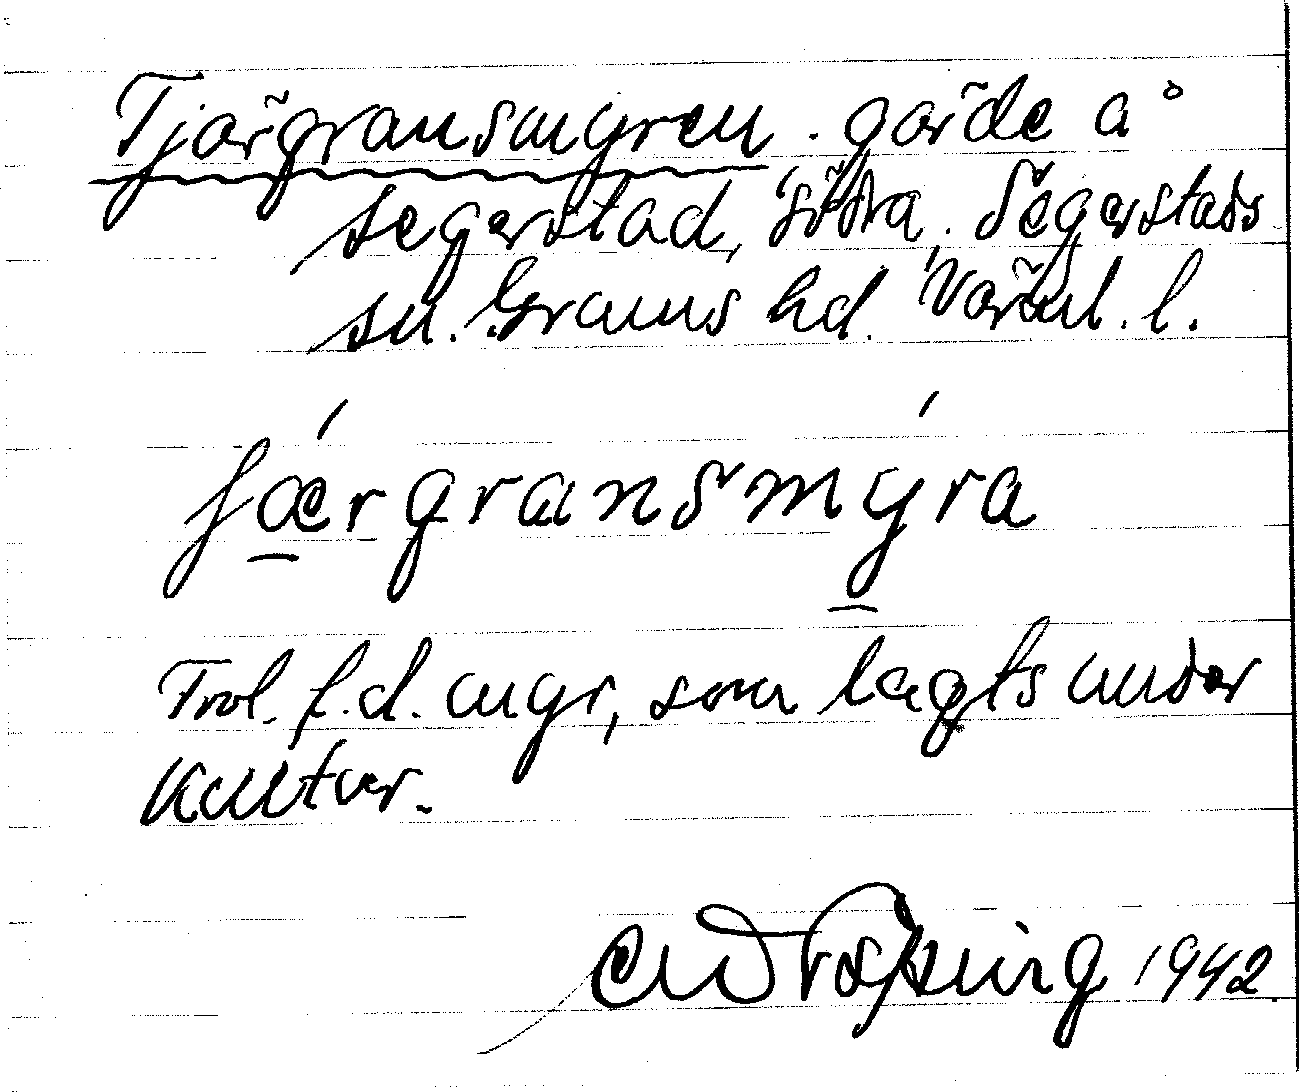 Tjärgransmyren. gärde å
Segerstad, Södra, Segerstads
sn. Grums hd. Värml. l.
ʃærgransmyra
Trol. f.d. myr, som lagts under
kultur.
1942